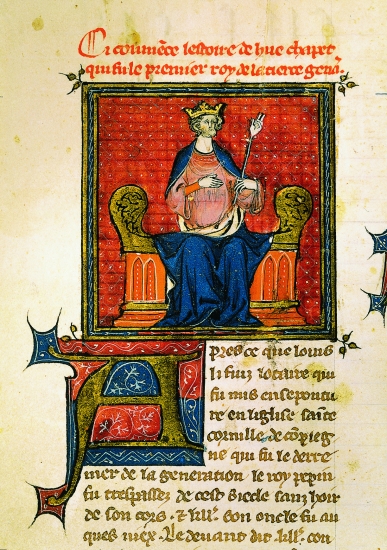 Ci cōmēce lestoire de hue chapet
qui fu le premier roy de la tierce genā.
Apres ce que louis
li fuiz lotaire qui
fu mis en sepoutu
re en leglise saīte
cornille de cōpieg
ne qui fu le derre
nier de la generation le roy pepin
fu trespassez de cest siecle sanz hoir
de son cors. Son oncle fu au
ques uiex. Le deuant dit